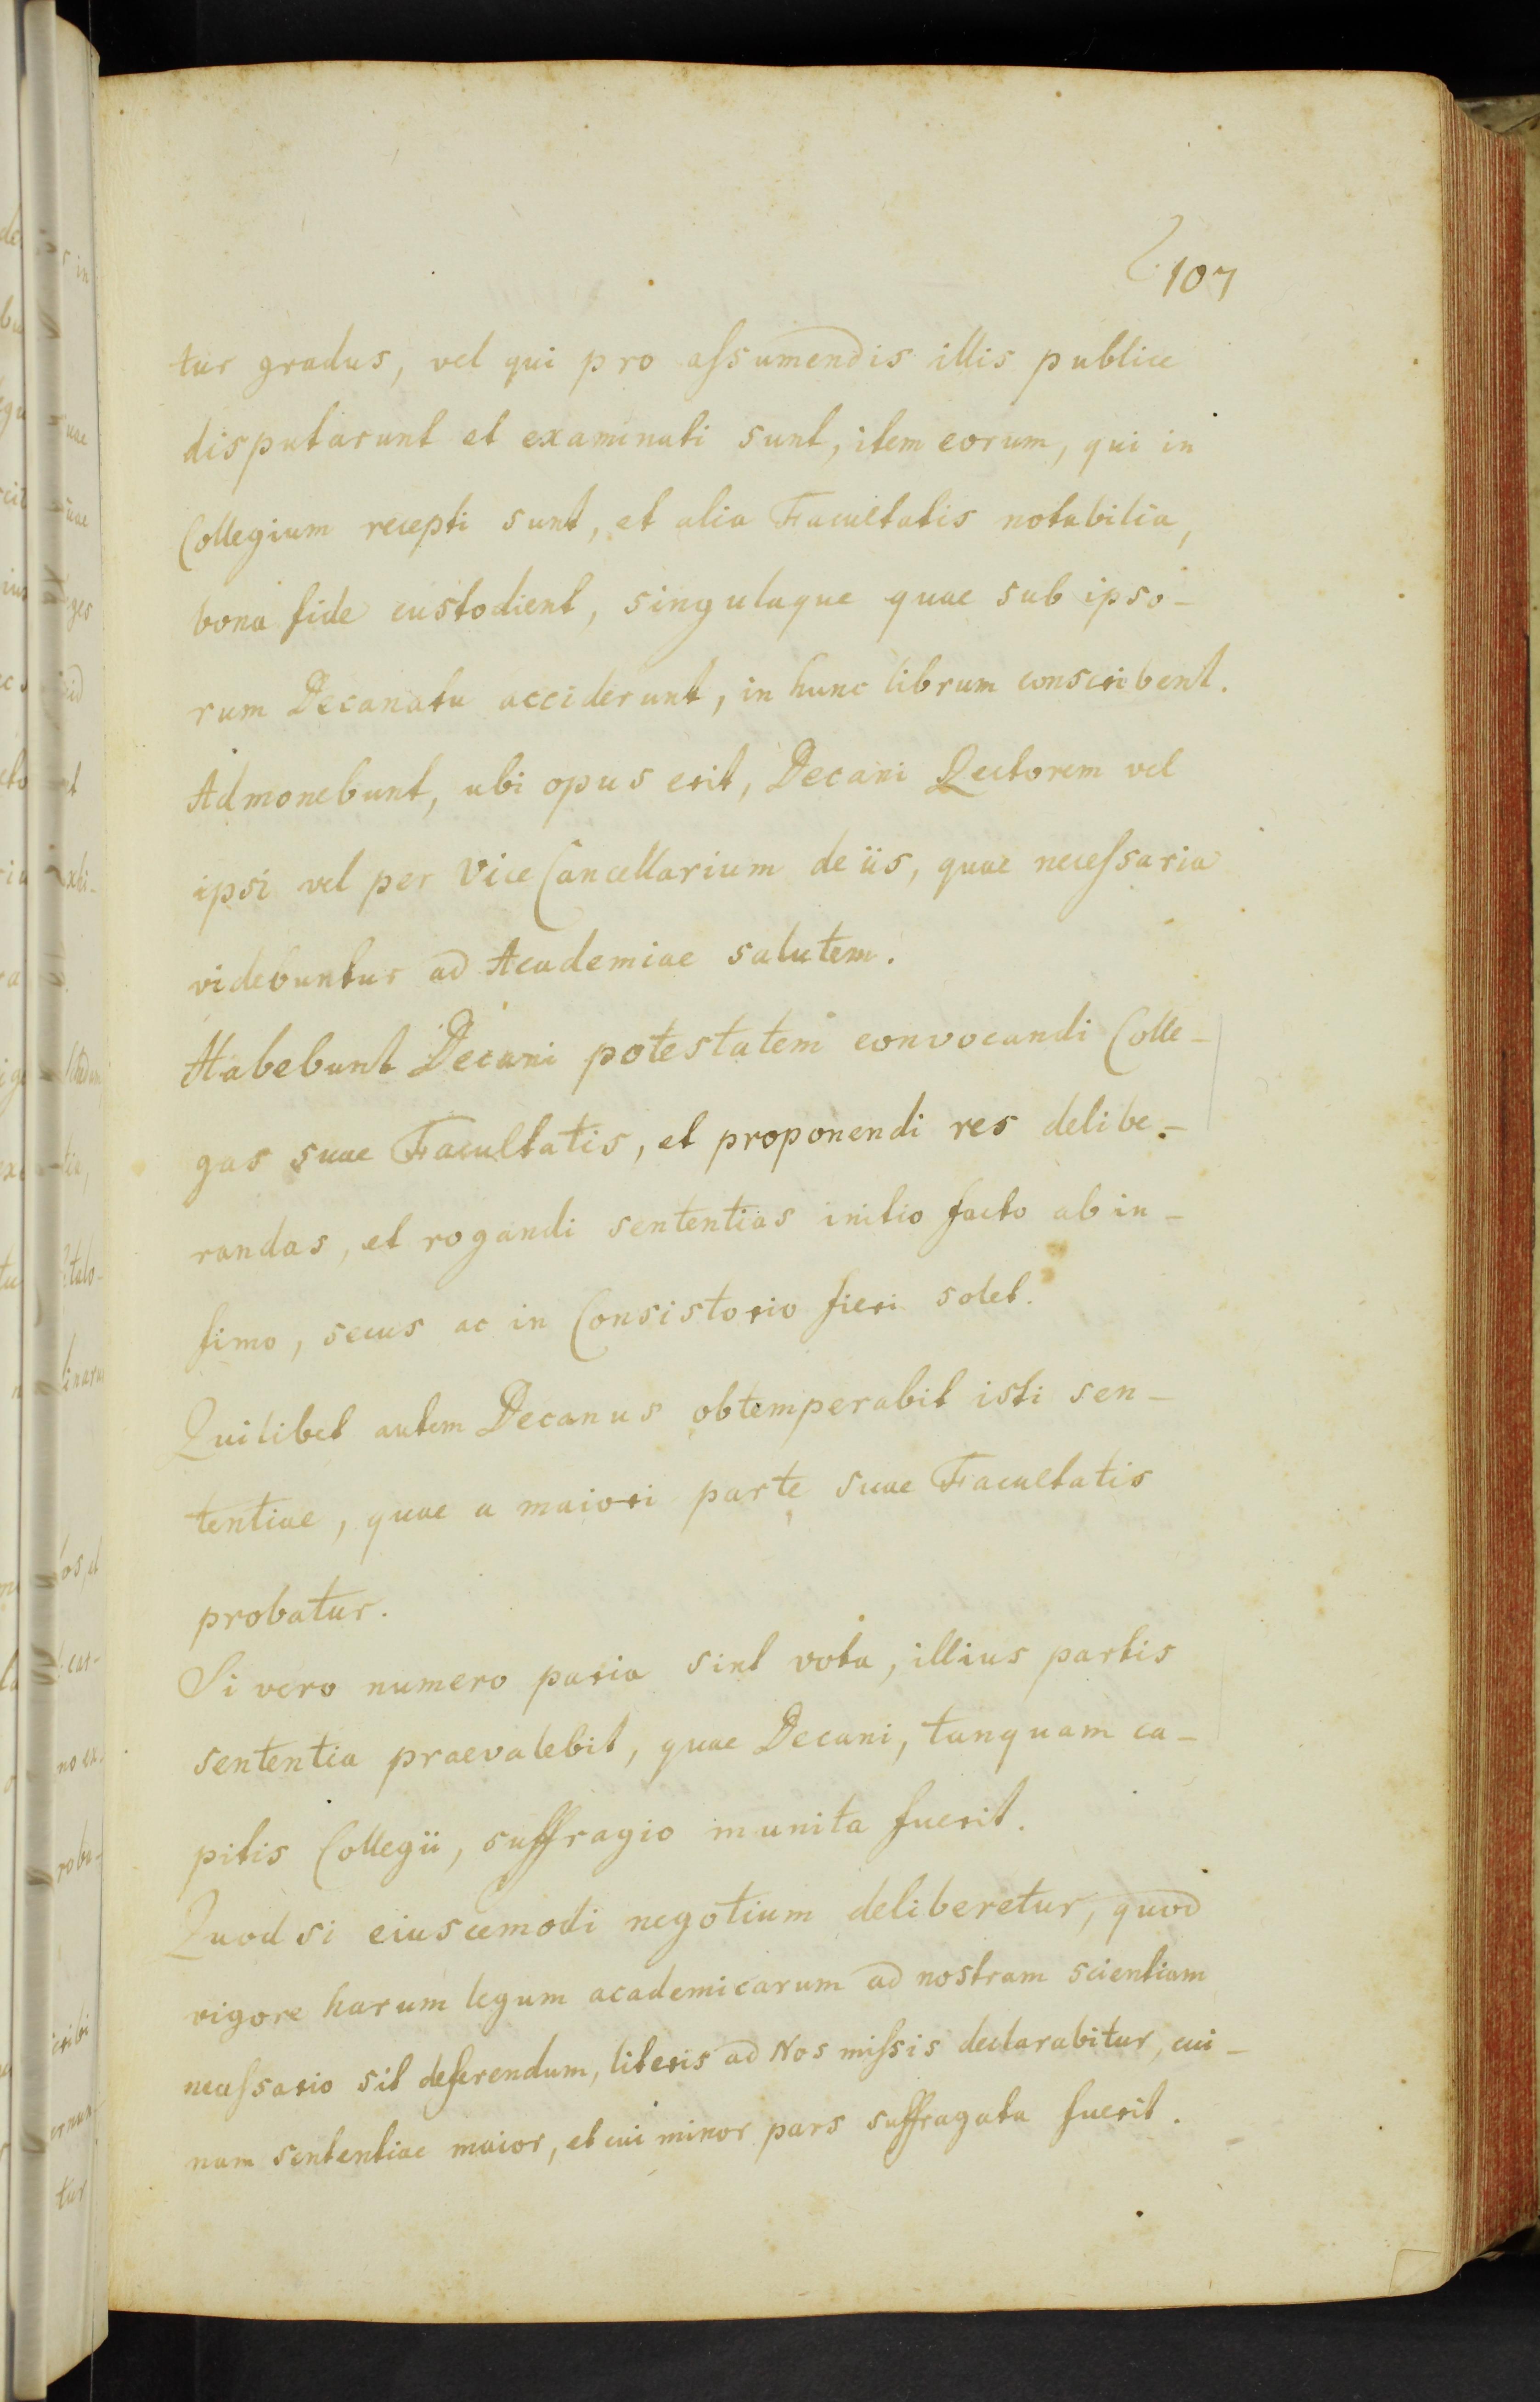 107
tur gradus, vel qui pro aſsumendis illis publice
disputarunt et examinati sunt, item eorum, qui in
Collegium recepti sunt, et alia Facultatis notabilia,
bona fide custodient, singulaque quae sub ipso-
rum Decanatu acciderunt, in hunc librum conscribent.
Admonebunt, ubi opus erit, Decani Rectorem vel
ipsi vel per Vice Cancellarium de iis, quae neceſsaria
videbuntur ad Academiae salutem.
Habebunt Decani potestatem convocandi Colle-
gas suae Facultatis, et proponendi res delibe-
randas, et rogandi sententias initio facto ab in-
fimo, secus ac in Consistorio fieri solet.
Quilibet autem Decanus obtemperabit isti sen-
tentiae, quae a maiori parte suae Facultatis
probatur.
Si vero numero paria sint vota, illius partis
sententia praevalebit, quae Decani, tanquam ca-
pitis Collegii, suffragio munita fuerit.
Quod si eiuscemodi negotium deliberetur, quod
vigore harum legum academicarum ad nostram scientiam
neceſsario sit deferendum, literis ad Nos miſsis declarabitur, cui-
nam sententiae maior, et cui minor pars suffragata fuerit.